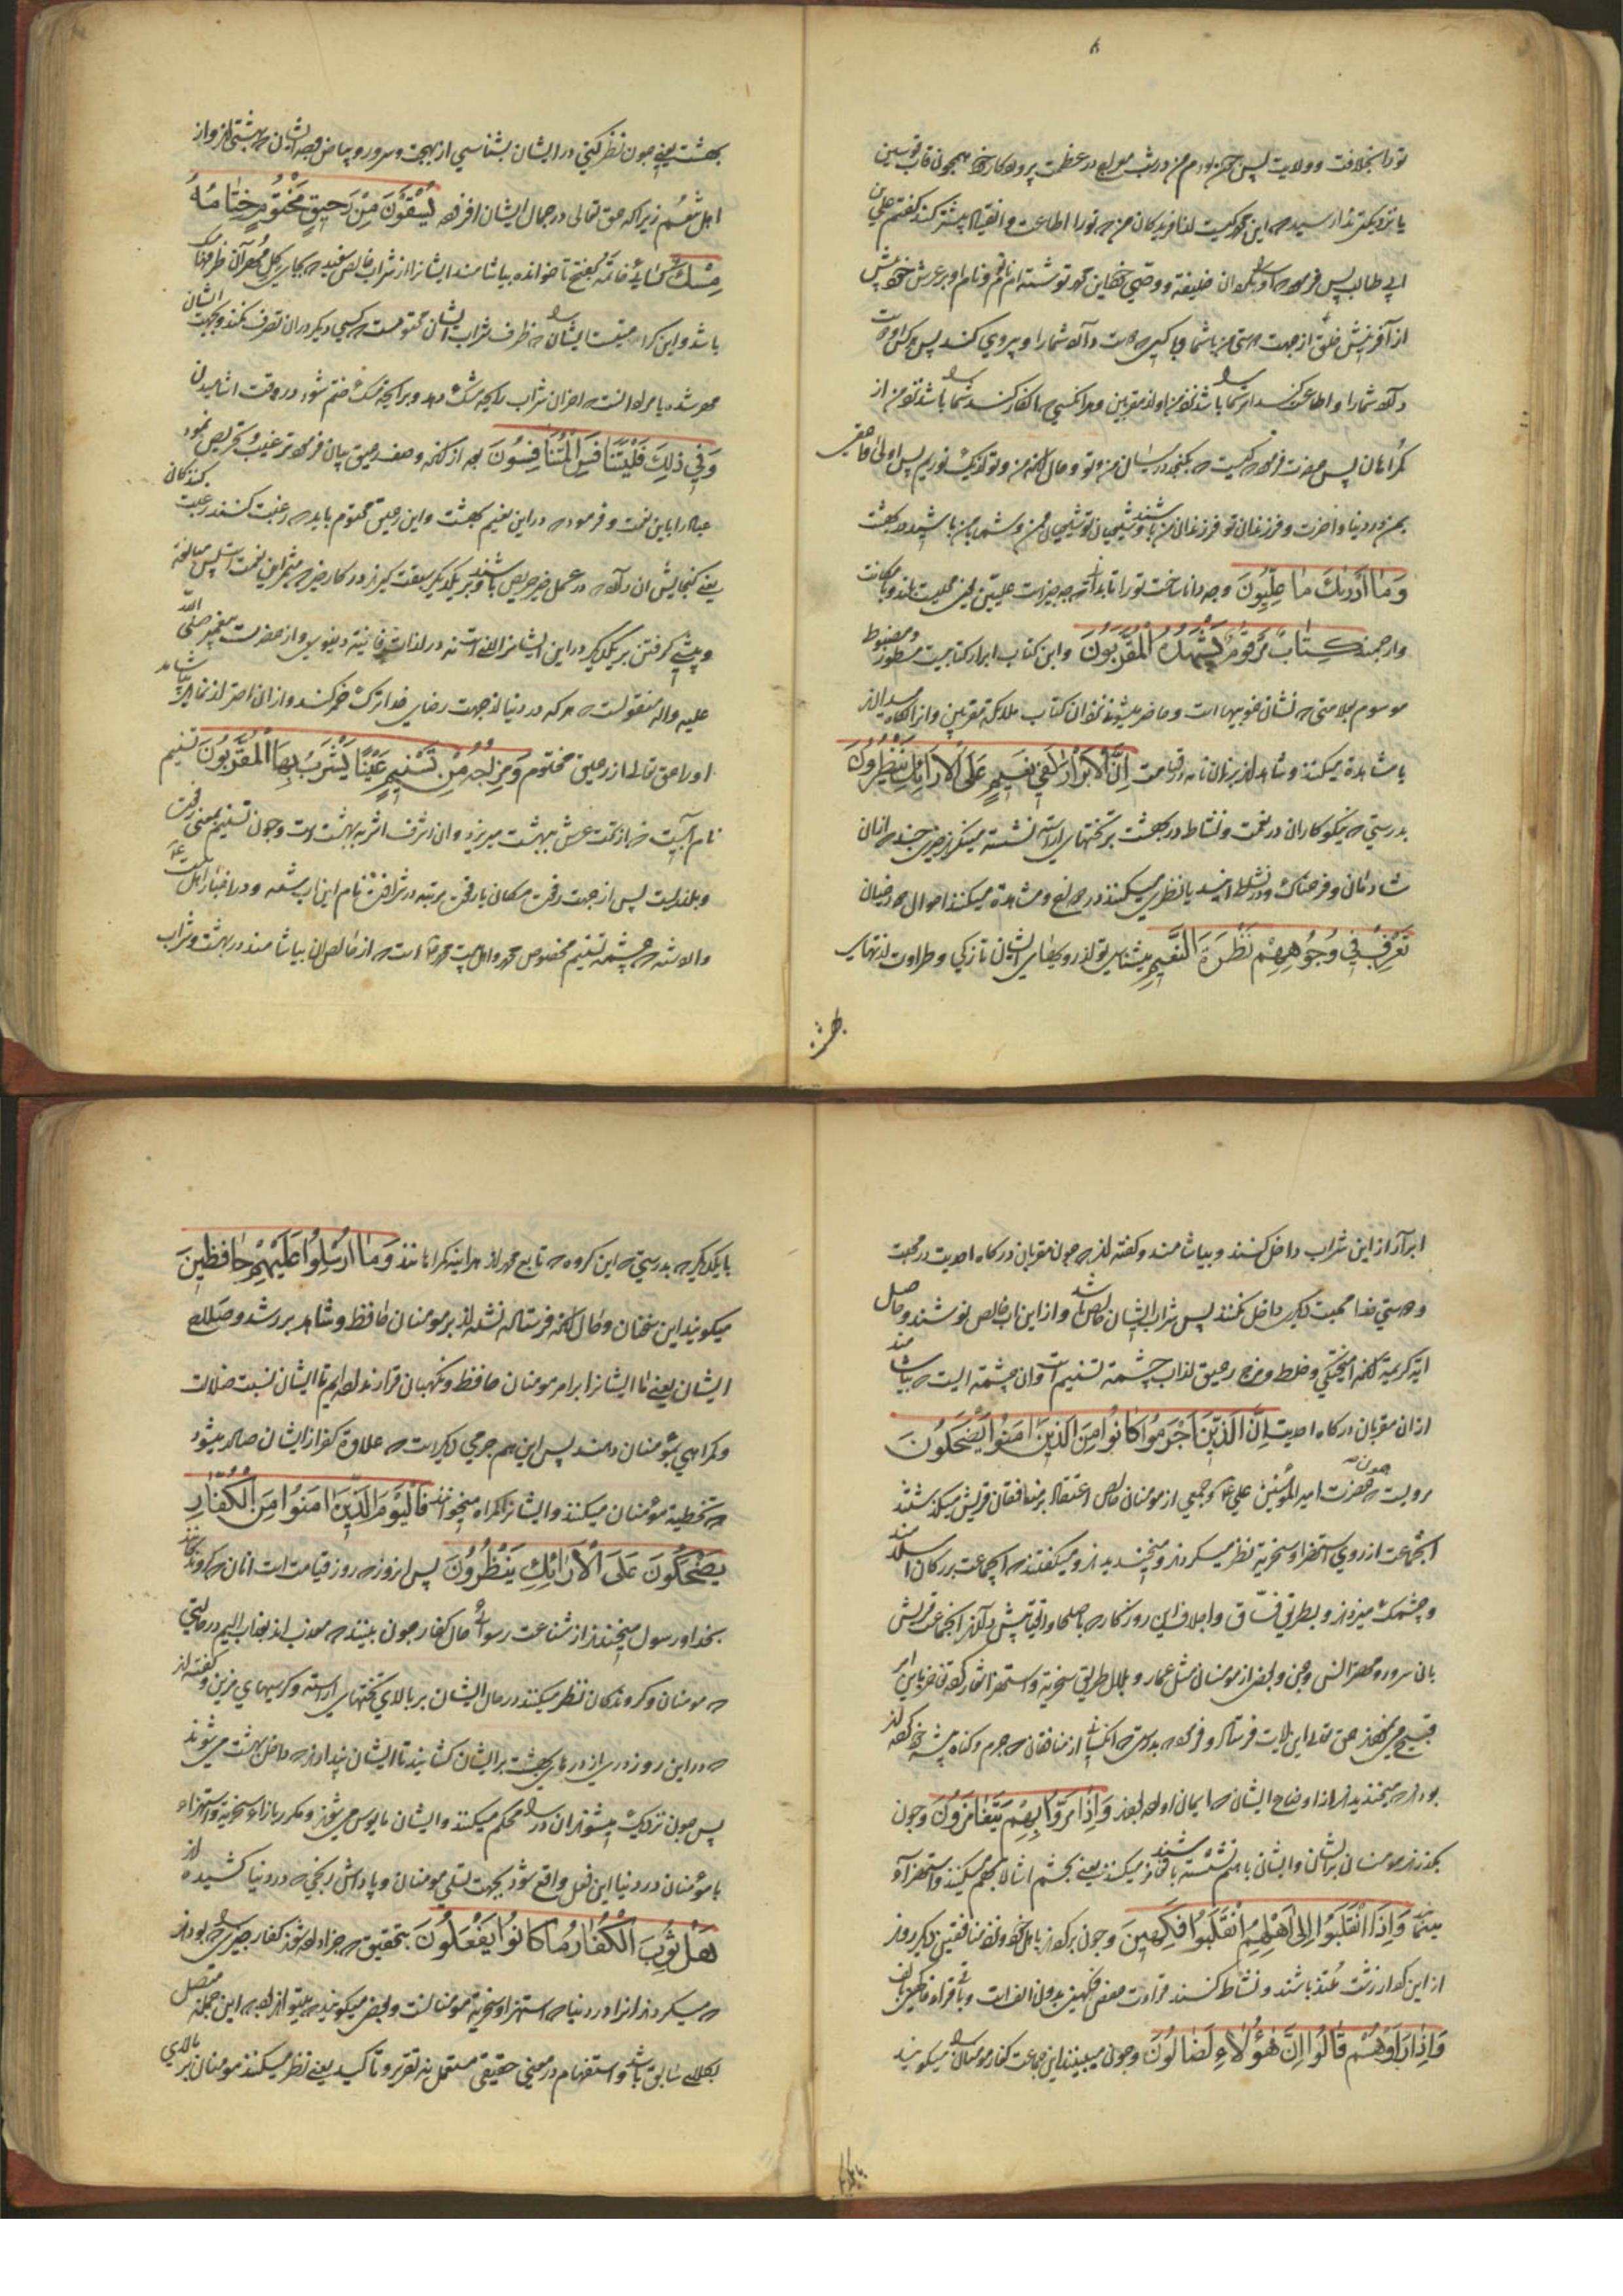 تورا بخلافت و ولایت پس چون بودم من در شب معراج در عظمت پروردکار خود همچون قاب قوسین
یا نزدیکتر ندا رسید که ای محمد کیست از آفریدکان من که تورا اطاعت و انقیاد بیشتر کند کفتم علی بن
ابی طالب پس فرمود که او را بکردان خلیفه و وصی خود
از آفرینش خلق از جهت دوستی من با شما و هر کسی که دوست دارد شمارا و پیروی کند پس هر کس که دوست
دارد شمارا و اطاعت کند از شما باشد نزد من او از مقربین و هر انکسی که انکار کند شما را باشد نزد من از
کمراهان پس حضرت فرمود که کیست که بکنجد در میان من و تو و حال آنکه من و تو از یک نوریم پس اولی و احق
بمن در دنیا و اخرت و فرزندان تو فرزندان من باشند و شیعیان تو شیعیان من و شما با من باشید در بهشت
وَمَا أَدْرٰىكَ مَا عِلِّيُّونَ وچه دانا ساخت تورا تا بدانی چه چیز است علیین یعنی محلیست بلند و با مکانت
وارجمند كِتَابٌ مَرْقُومٌ يَشْهَدُهُ الْمُقَرَّبُونَ واین کتاب ابرار کتابیست مسطور و مضبوط
موسوم بعلامتی که نشان خوبیها است و حاضر میشوند نزد ان کتاب ملائکه مقربین و از انکاه میدارند
یا مشاهده میکنند و شاهدند بران نامه در قیامت إِنَّ الْأَبْرَارَ لَفِي نَعِيمٍ عَلَى الْأَرَائِكِ يَنْظُرُونَ
بدرستی که نیکوکاران در نعمت و نشاط در بهشت بر تختهای اراسته نشسته مینکرند چیزی چند که از ان
شادمان و فرحناک و در نشاط ایند یا نظر میکنند در صانع و مشاهده میکنند احوال
تَعْرِفُ فِي وُجُوهِهِمْ نَضْرَةَ النَّعِيمِ میشناسی تو از رویهای ایشان تازکی و طراوت از نتهای
بهشت
بهشت یعنی چون نظر کنی در ایشان بشناسی از بهجت و سرور و بیاض وجه ایشان که بهشتی اند و از
اهل تنعم زیرا که حق تعالی در جمال ایشان افزوده يُسْقَوْنَ مِنْ رَحِيقٍ مَخْتُومٍ خِتَامُهُ
مِسْكٌ کسایی خاتمه بفتح تا خوانده بیاشامند ایشانرا از شراب خالص سفید که بجای کل مُهر آن ظرفها مشک
باشد و این کرامتیست ایشان را که ظرف شراب ایشان مختومست که کسی دیکر در ان تصرف نکند و بجهت ایشان
مهر شده یا مراد انست که اخر ان شراب رایحه مشک دهد و برایحه مشک ختم شود در وقت اشامیدن
وَفِي ذٰلِكَ فَلْيَتَنَافَسِ الْمُتَنَافِسُونَ بعد از آنکه وصف رحیق بیان فرمود ترغیب و تحریص نمود
عباد را باین نعمت و فرموده در این نعیم بهشت و این رحیق مختوم باید که رغبت کنند رغبت کنندکان
یعنی کنجایش ان دارد که در عمل خیر حریص باشند و بر یکدیکر سبقت کیرند در کار خیر که مثمر این نعمت است پس مبالغه
و پیشی کرفتن بر یکدیکر در این ایشانرا لازم است نه در لذات فانیه دنیویه و از حضرت پیغمبر صلی الله
علیه واله منقولست که هر که در دنیا از جهت رضای خدا ترک خمر کند و از ان احتراز نماید بیاشامد
اورا حق تعالی از رحیق مختوم وَمِزَاجُهُ مِنْ تَسْنِيمٍ عَيْنًا يَشْرَبُ بِهَا الْمُقَرَّبُونَ تسنیم
نام آبیست که از تحت عرش ببهشت میریزد و ان اشرف اشربه بهشت است و چون تسنیم بمعنی رفعت
و بلندیست پس از جهت رفعت مکان یا رفعت مرتبه در شرافت نام این اب شده و در اخبار اهل بیت
وارد شده که چشمه تسنیم مخصوص محمد و اهل بیت محمد است که از خالص ان بیاشامند در بهشت و شراب
ابرار از این شراب داخل کنند و بیاشامند و کفته اند که چون مقربان درکاه احدیت در محبت
و دوستی خدا محبت دیکر داخل نکنند پس شراب ایشان خالص باشد و از این اب خالص نوشند و حاصل
ایه کریمه آنکه آمیختکی و خلط و مزج رحیق از اب چشمه تسنیم است و ان چشمه ایست که بیاشامند
از ان مقربان درکاه احدیت إِنَّ الَّذِينَ أَجْرَمُوا كَانُوا مِنَ الَّذِينَ آمَنُوا يَضْحَكُونَ
مرویست که چون حضرت امیر المؤمنین علی ع و جمعی از مومنان خالص اعتقاد بر منافقان قریش میکذشتند
انجماعت از روی استهزا و سخریه نظر میکردند و میخندیدند و میکفتند که اینجماعت بزرکان اسلامند
و چشمک میزدند و بطریق فساق و اجلاف این روزکار که با صلحا و اتقیا پیش دارند انجماعت قریش
بان سرور و مهتر انس و جن و بعضی از مومنان مثل عمار و بلال طریق سخریه و استهزا شعار کرده
قبیح می نمودند حق تعالی این ایات فرستاد و فرمود بدرستی که انکسانی از منافقان که جرم و کناه پیشه خود کرده
بودند که میخندیدند از اوضاع ایشان که ایمان اورده بودند وَإِذَا مَرُّوا بِهِمْ يَتَغَامَزُونَ وچون
بکذرند مومنان برایشان و ایشان باهم نشسته باشند تغامز میکنند یعنی بچشم اشاره بهم میکنند و استهزاء
مینمایند وَإِذَا انْقَلَبُوا إِلَى أَهْلِهِمُ انْقَلَبُوا فَكِهِينَ وچون برکردند باهل خود و نزد منافقین دیکر روند
از این کردار زشت متلذذ باشند و نشاط کنند قراءت حفص فکهین بدون الف است و باقی قراء فاکهین بالف
وَإِذَا رَأَوْهُمْ قَالُوا إِنَّ هٰؤُلَاءِ لَضَالُّونَ وچون میبینند این جماعت کفار مومنان را میکویند
بایکدیکر
بایکدیکر که بدرستی که این کروه که تابع محمدند هر اینه کمراهانند وَمَا أُرْسِلُوا عَلَيْهِمْ حَافِظِينَ
میکویند این سخنان و حال آنکه فرستاده نشده اند بر مومنان حافظ و شاهد بر رشد و ضلال
ایشان یعنی ما ایشانرا بر امر مومنان حافظ و نکهبان قرار نداده ایم تا ایشان نسبت ضلالت
و کمراهی بمؤمنان دهند پس این هم جرمی دیکر است که علاوه کفر از ایشان صادر میشود
که تخطیه مؤمنان میکنند و ایشانرا کمراه میخوانند فَالْيَوْمَ الَّذِينَ آمَنُوا مِنَ الْكُفَّارِ
يَضْحَكُونَ عَلَى الْأَرَائِكِ يَنْظُرُونَ پس امروز که روز قیامت است انان که کرویده اند
بخدا و رسول میخندند از شناعت رسوائی حال کفار چون بینند که معذب اند بعذاب الیم در حالتی
که مومنان و کروندکان نظر میکنند در حال ایشان بر بالای تختهای اراسته و کرسیهای مزین و کفته اند
که در این روز دری از درهای بهشت بر ایشان کشایند تا ایشان پندارند که داخل بهشت می شوند
پس چون نزدیک میشوند ان در را محکم میکنند و ایشان مایوس می شوند و مکرر بازاء سخریه و استهزاء
با مؤمنان در دنیا این فعل واقع شود بجهت تسلی مومنان و پاداش رنجی که در دنیا کشیده اند
هَلْ ثُوِّبَ الْكُفَّارُ مَا كَانُوا يَفْعَلُونَ بتحقیق که جزا داده شوند کفار چیزی را که بودند
که میکردند انرا در دنیا که استهزا و سخریه مومنانست و بعضی میکویند میتواند بود که این جمله متصل
بکلام سابق باشد و استفهام در معنی حقیقی مستعمل نه تقریر و تاکید یعنی نظر میکنند مومنان بر بالای